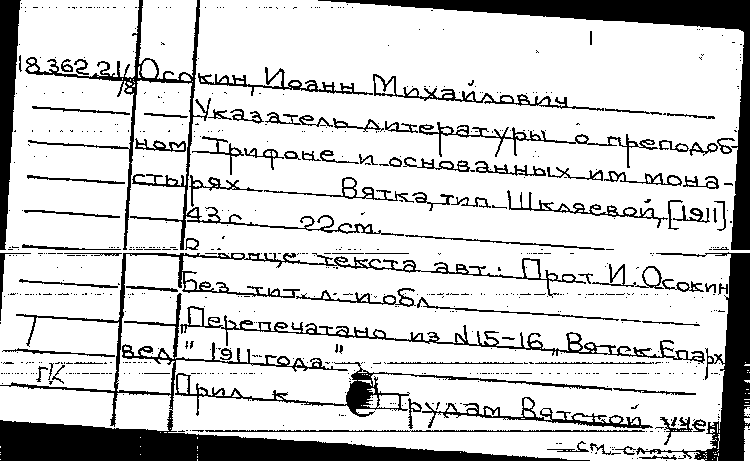 18.362.2.1/8 Осокин, Иоанн Михайлович.
Указатель литературы о преподоб-
ном Трифоне и основанных им мона-
стырях. Вятка, тип. Шкляевой, [1911].
43 с. 22 см.
В конце текста авт.: Прот. И. Осокин
Без тит. л. и обл.
„Перепечатано из №15-16 „Вятск. Епарх.
вед." 1911 года."
ГК
Прил. к Трудам Вятской учен
см. след.